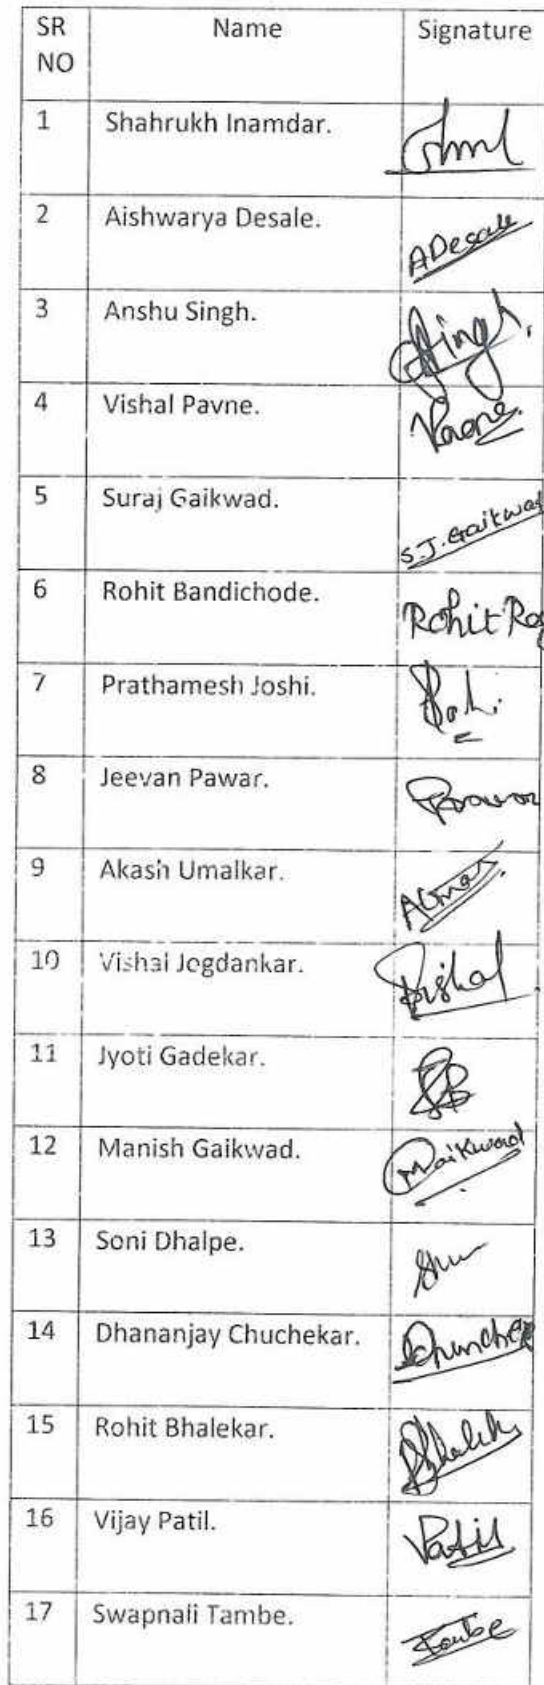 SR NO Name Signature
1 Shahrukh Inamdar.
2 Aishwarya Desale. ADesale
3 Anshu Singh. Singh.
4 Vishal Pavne.
5 Suraj Gaikwad. S.J. Gaikwad
6 Rohit Bandichode. Rohit
7 Prathamesh Joshi.
8 Jeevan Pawar.
9 Akash Umalkar.
10 Vishal Jogdankar. Vishal
11 Jyoti Gadekar.
12 Manish Gaikwad. Gaikwad
13 Soni Dhalpe.
14 Dhananjay Chuchekar.
15 Rohit Bhalekar.
16 Vijay Patil. Patil
17 Swapnali Tambe. Tambe